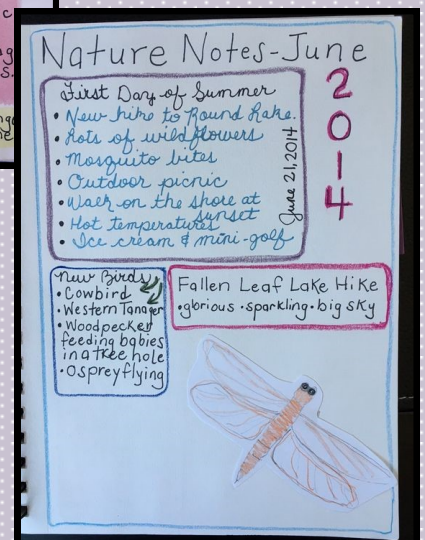 Nature Notes-June
2014
First Day of Summer
• New hike to Round Lake.
• Lots of wildflowers
• Mosquito bites
• Outdoor picnic
• Walk on the shore at
sunset
• Hot temperatures
• Ice cream & mini-golf
June 21, 2014
New Birds
• Cowbird
• Western Tanager
• Woodpecker
feeding babies
in a tree hole
• Osprey flying
Fallen Leaf Lake Hike
• glorious • sparkling • big sky